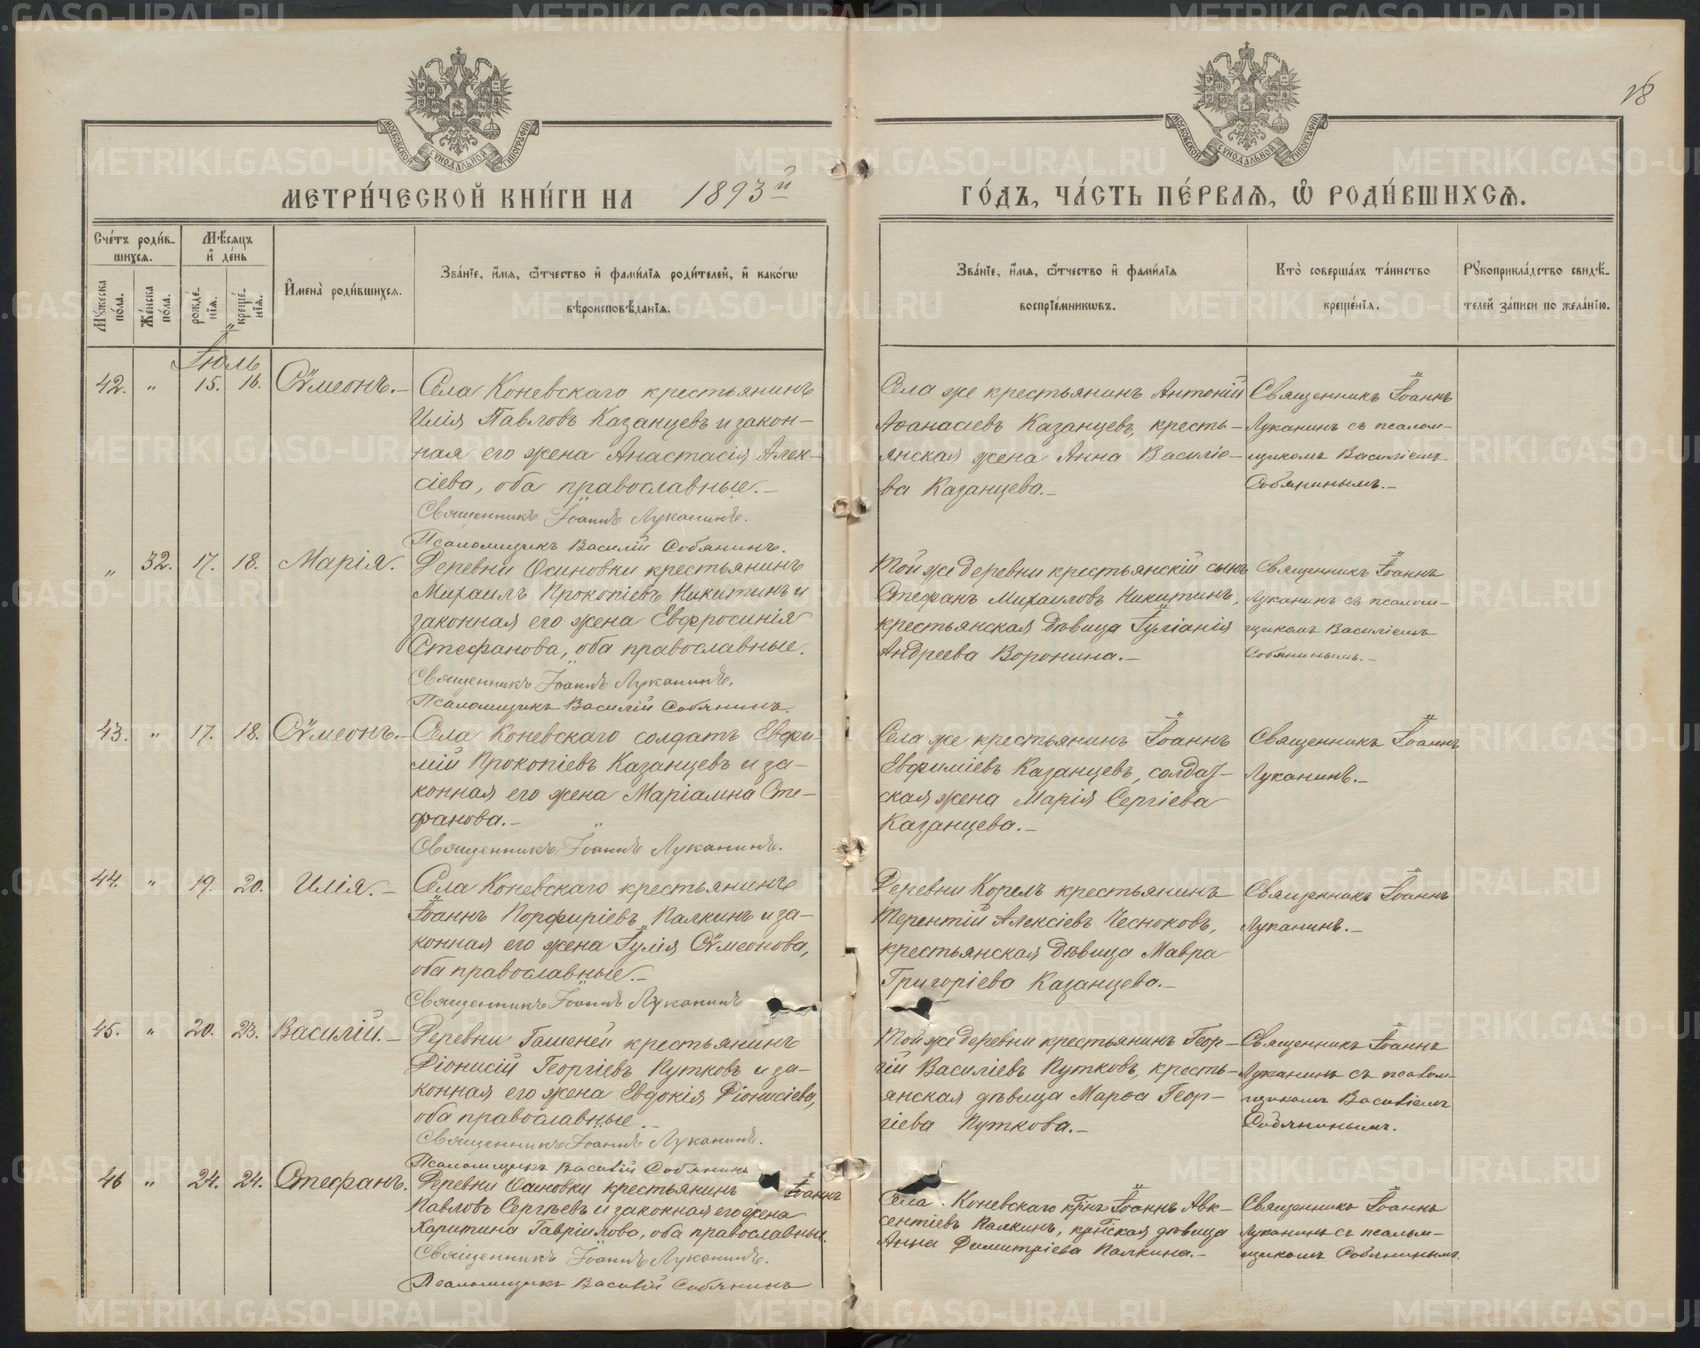 28
МЕТРИ́ЧЕСКОЙ КНИ́ГИ НА 1893й
ГО́ДЪ, ЧА́СТЬ ПЕ́РВАЯ, Ѽ РОДИ́ВШИХСЯ.
Сче́тъ роди́в-
шихся.
Мѣ́сяцъ
и҆ де́нь
Мꙋжеска по́ла.
Же́нска по́ла.
рожде́-
нїя.
креще́-
нїя.
И҆мена̀ роди́вшихся.
Зва́нїе, и҆́мя, ѻ҆́тчество и҆ фами́лїя роди́телей, и҆ како́гѡ
вѣроисповѣ́данїя.
Зва́нїе, и҆́мя, ѻ҆́тчество и҆ фами́лїя
воспрїе́мникѡвъ.
Кто̀ соверша́лъ та́инство
креще́нїя.
Рꙋкоприкла́дство свидѣ́-
телей за́писи по жела́нїю.
Іюль
42. " 15. 16. Сѵмеонъ.-
Села Коневскаго крестьянинъ
Илія Павловъ Казанцевъ и закон-
ная его жена Анастасія Алек-
сіева, оба православные.-
Священникъ Іоаннъ Луканинъ.
Псаломщикъ Василій Собянинъ.
Села же крестьянинъ Антоній
Аѳанасіевъ Казанцевъ, кресть-
янская жена Анна Василіе-
ва Казанцева.-
Священникъ Іоаннъ
Луканинъ съ псалом-
щикомъ Василіемъ
Собянинымъ.-
" 32. 17. 18. Марія.
Деревни Осиновки крестьянинъ
Михаилъ Прокопіевъ Никитинъ и
законная его жена Евфросинія
Стефанова, оба православные.
Священникъ Іоаннъ Луканинъ.
Псаломщикъ Василій Собянинъ.
Той же деревни крестьянскій сынъ
Стефанъ Михаиловъ Никитинъ,
крестьянская дѣвица Іуліанія
Андреева Воронина.-
Священникъ Іоаннъ
Луканинъ съ псалом-
щикомъ Василіемъ
Собянинымъ.-
43. " 17. 18. Сѵмеонъ.-
Села Коневскаго солдатъ Евфи-
мій Прокопіевъ Казанцевъ и за-
конная его жена Маріамна Сте-
фанова.-
Священникъ Іоаннъ Луканинъ.
Села же крестьянинъ Іоаннъ
Евфиміевъ Казанцевъ, солдат-
ская жена Марія Сергіева
Казанцева.-
Священникъ Іоаннъ
Луканинъ.-
44. " 19. 20. Илія.-
Села Коневскаго крестьянинъ
Іоаннъ Порфиріевъ Палкинъ и за-
конная его жена Іулія Сѵмеонова,
оба православные.-
Священникъ Іоаннъ Луканинъ
Деревни Корелъ крестьянинъ
Терентій Алексіевъ Чесноковъ,
крестьянская дѣвица Мавра
Григоріева Казанцева.-
Священникъ Іоаннъ
Луканинъ.-
45. " 20. 23. Василій.-
Деревни Гашеней крестьянинъ
Діонисій Георгіевъ Путковъ и за-
конная его жена Евдокія Діонисіева,
оба православные.-
Священникъ Іоаннъ Луканинъ.
Псаломщикъ Василій Собянинъ
Той же деревни крестьянинъ Геор-
гій Василіевъ Путковъ, кресть-
янская дѣвица Марѳа Геор-
гіева Путкова.-
Священникъ Іоаннъ
Луканинъ съ псалом-
щикомъ Василіемъ
Собянинымъ.
46 " 24. 24. Стефанъ.
Деревни Осиновки крестьянинъ Іоаннъ
Павловъ Сергѣевъ и законная его жена
Харитина Гавріилова, оба православные.
Священникъ Іоаннъ Луканинъ.
Псаломщикъ Василій Собянинъ
Села Коневскаго крнъ Іоаннъ Авк-
сентіевъ Палкинъ, крнская дѣвица
Анна Димитріева Палкина.-
Священникъ Іоаннъ
Луканинъ съ псалом-
щикомъ Собянинымъ.
METRIKI.GASO-URAL.RU